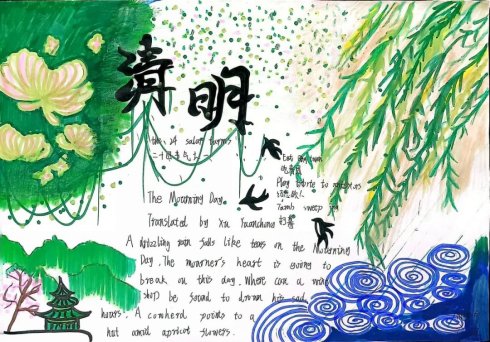 清明
The 24 solar terms
二十四节气之一
Play tribute to ancestors
Tomb sweep
扫墓
The Mourning Day
Translated by Xu Yuanchong
A drizzling rain falls like tears on the Mourning
Day. The mourner's heart is going to
break on this day. Where can a wine
shop be found to drown his sad
hours. A cowherd points to a
hut amid apricot flowers.